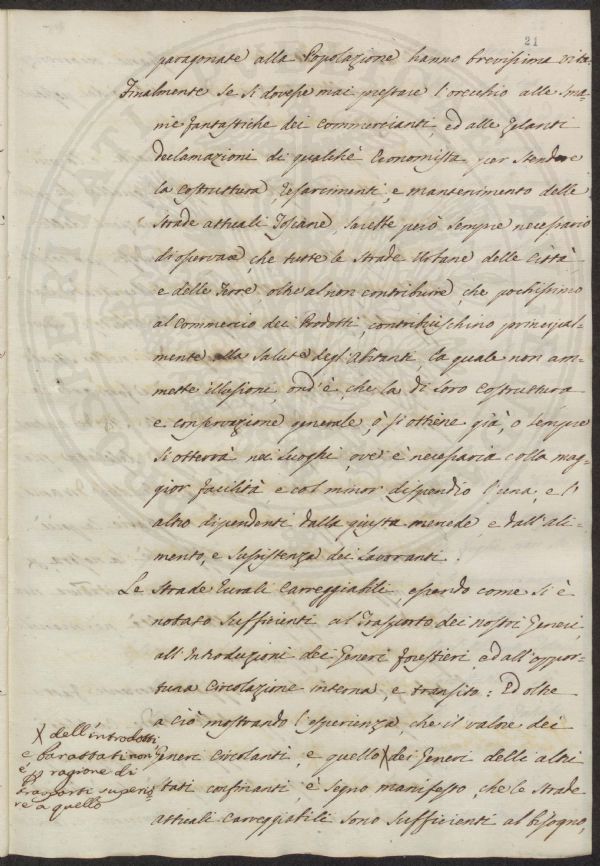 21
paragonate alla Popolazione hanno brevissima vita.
Finalmente se si dovesse mai prestare l'orecchio alle sma=
nie fantastiche dei Commercianti, ed alle Zelanti
declamazioni di qualche Economista per stendere
la costruttura, resarcimenti, e mantenimento delle
Strade attuali Toscane, sarebbe però sempre necessario
di osservare, che tutte le Strade Urbane delle Città
e delle Terre, oltre al non contribuire, che pochissimo
al Commercio dei Prodotti, contribuischino principal=
mente alla Salute degl'Abitanti, la quale non am=
mette illusioni, ond'è, che la di loro costruttura
e conservazione generale, ò si ottiene già, o sempre
si otterrà nei luoghi, ove è necessaria colla mag=
gior facilità e col minor dispendio l'una, e l'
altro dipendenti dalla giusta mercede, e dall'ali=
mento, e sussistenza dei Lavoranti.
Le Strade Rurali Carreggiabili, essendo come si è
notato sufficienti al Trasporto dei nostri Generi,
all'Introduzioni dei Generi forestieri, ed all'oppor=
tuna Circolazione interna, e transito: Ed oltre
a ciò mostrando l'esperienza, che il valore dei
Generi Circolanti, e quello X dei Generi delli altri
X dell'introdotti
e barattati non
è per ragione di
trasporti superio=
re a quello
Stati confinanti, è segno manifesto, che le Strade
attuali Carreggiabili sono sufficienti al bisogno,